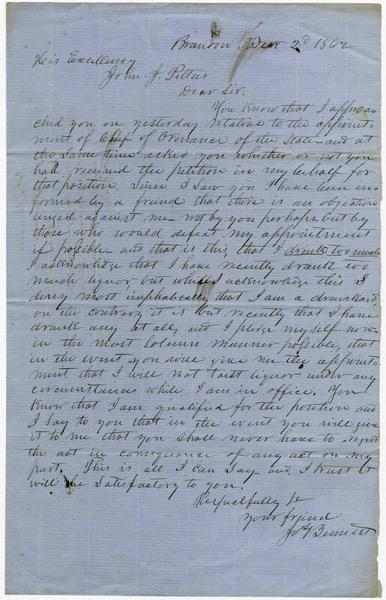 Brandon, Decr 2d 1862
His Excellency
John J. Pettus
Dear Sir.
You know that I approa
ched you on yesterday relative to the appoint-
ment of Chief of Ordnance of the State and at
the same time asked you whether or not you
had received the petition in my behalf for
that position. Since I saw you I have been in-
formed by a friend that there is an objection
urged against me - not by you perhaps but by
those who would defeat my appointment
if possible and that is this, that I drink too much
I acknowledge that I have recently drank too
much liquor but while I acknowledge this I
deny most emphatically that I am a drunkard,
on the contrary it is but recently that I have
drank any at all, and I pledge myself now
in the most solemn manner possible, that
in the event you will give me this appoint-
ment that I will not tast liquor under any
circumstances while I am in office. You
know that I am qualified for the position and
I say to you that in the event you will give
it to me that you shall never have to regret
the act in consequence of any act on my
part. This is all I can say and I trust it
will be satisfactory to you.
Respectfully &c
Your friend
Bennett